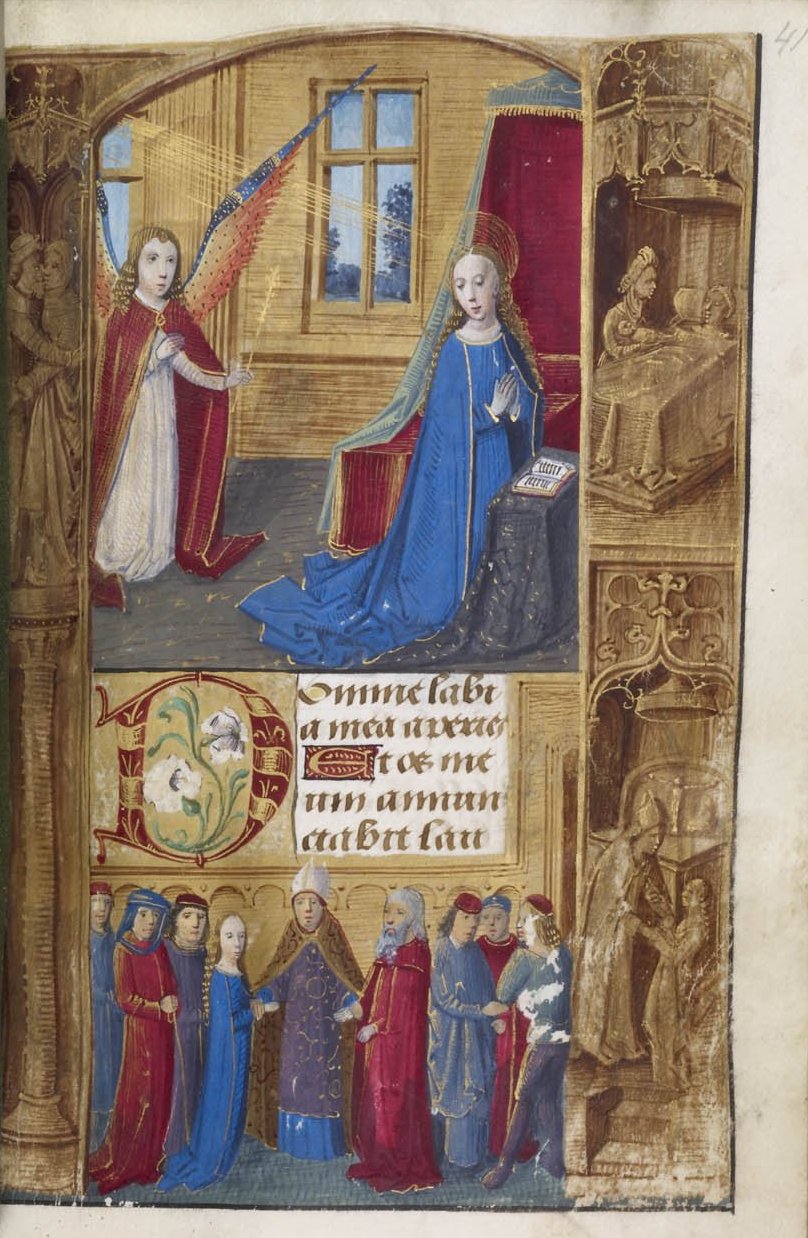 41
Domine labi
a mea aperies
Et os me
um annun
ciabit lau